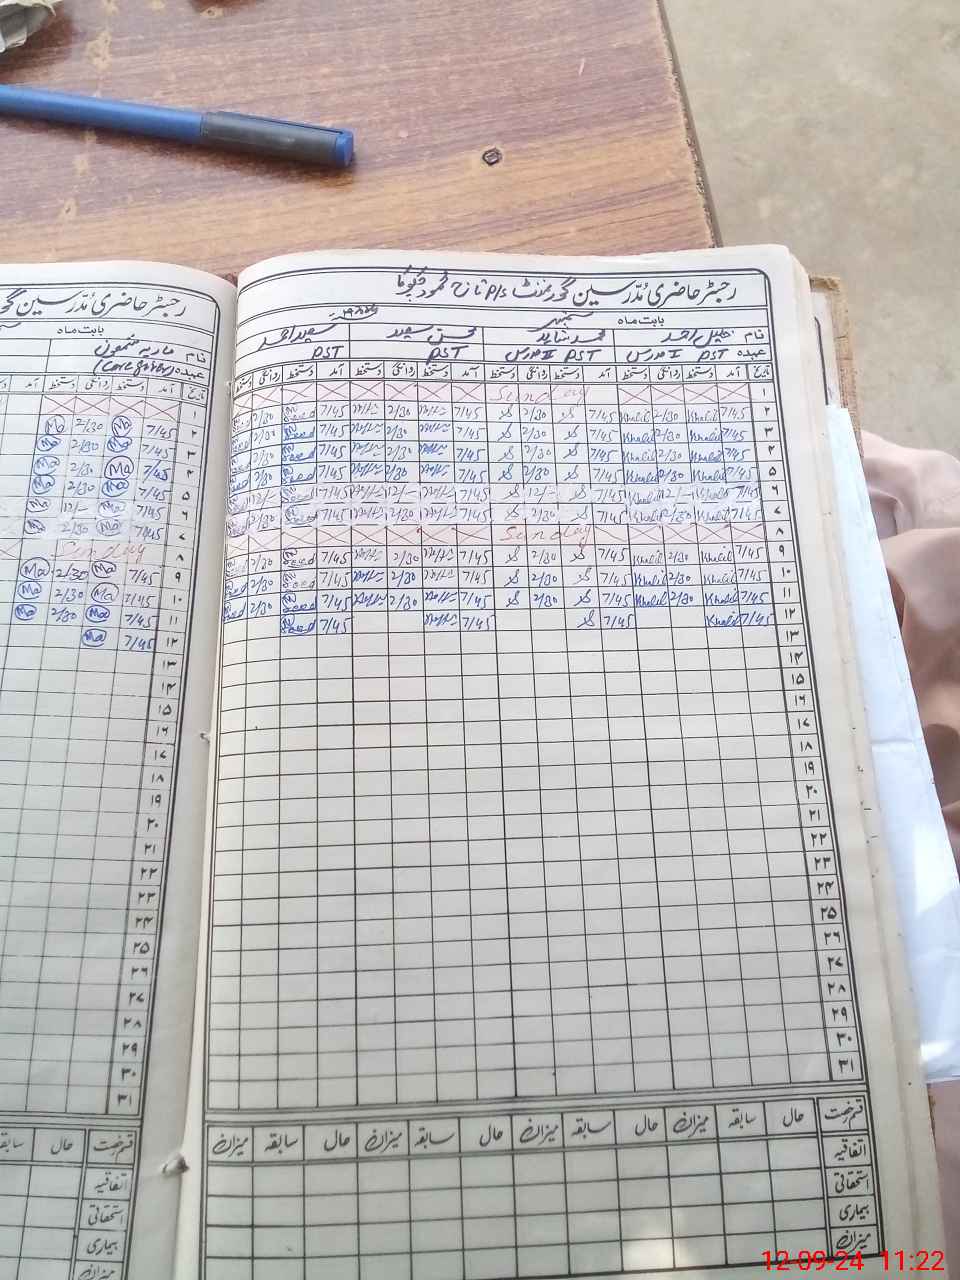 رجسٹر حاضری مُدرسین گورنمنٹ P/S
بابت ماہ ستمبر
نام خلیل احمد محمد شاہد محسن سعید سعید احمد
عہدہ PST I مدرس PST II مدرس PST PST
تاریخ آمد دستخط روانگی دستخط آمد دستخط روانگی دستخط آمد دستخط روانگی دستخط آمد دستخط روانگی دستخط
۱ Sunday
۲ 7/45 Khalil 2/30 Khalil 7/45 2/30 7/45 2/30 7/45 Saeed 2/30
۳ 7/45 Khalil 2/30 Khalil 7/45 2/30 7/45 2/30 7/45 Saeed 2/30
۴ 7/45 Khalil 2/30 Khalil 7/45 2/30 7/45 2/30 7/45 Saeed 2/30
۵ 7/45 Khalil 2/30 Khalil 7/45 2/30 7/45 2/30 7/45 Saeed 2/30
۶ 7/45 Khalil 12/- Khalil 7/45 12/- 7/45 12/- 7/45 Saeed 12/-
۷ 7/45 Khalil 2/30 Khalil 7/45 2/30 7/45 2/30 7/45 Saeed 2/30
۸ Sunday
۹ 7/45 Khalil 2/30 Khalil 7/45 2/30 7/45 2/30 7/45 Saeed 2/30
۱۰ 7/45 Khalil 2/30 Khalil 7/45 2/30 7/45 2/30 7/45 Saeed 2/30
۱۱ 7/45 Khalil 2/30 Khalil 7/45 2/30 7/45 2/30 7/45 Saeed 2/30
۱۲ 7/45 Khalil 7/45 7/45 7/45 Saeed
۱۳
۱۴
۱۵
۱۶
۱۷
۱۸
۱۹
۲۰
۲۱
۲۲
۲۳
۲۴
۲۵
۲۶
۲۷
۲۸
۲۹
۳۰
۳۱
قسم رخصت حال سابقہ میزان حال سابقہ میزان حال سابقہ میزان حال سابقہ میزان
اتفاقیہ
استحقاقی
بیماری
میزان
رجسٹر حاضری مُدرسین
بابت ماہ
نام ماریہ
عہدہ (Care giver)
تاریخ آمد دستخط روانگی دستخط
۱
۲ 7/45 Ma 2/30 Ma
۳ 7/45 Ma 2/30 Ma
۴ 7/45 Ma 2/30 Ma
۵ 7/45 Ma 2/30 Ma
۶ 7/45 Ma 12/- Ma
۷ 7/45 Ma 2/30 Ma
۸ Sunday
۹ 7/45 Ma 2/30 Ma
۱۰ 7/45 Ma 2/30 Ma
۱۱ 7/45 Ma 2/30 Ma
۱۲ 7/45 Ma
۱۳
۱۴
۱۵
۱۶
۱۷
۱۸
۱۹
۲۰
۲۱
۲۲
۲۳
۲۴
۲۵
۲۶
۲۷
۲۸
۲۹
۳۰
۳۱
قسم رخصت حال سابقہ
اتفاقیہ
استحقاقی
بیماری
میزان
12-09-24 11:22